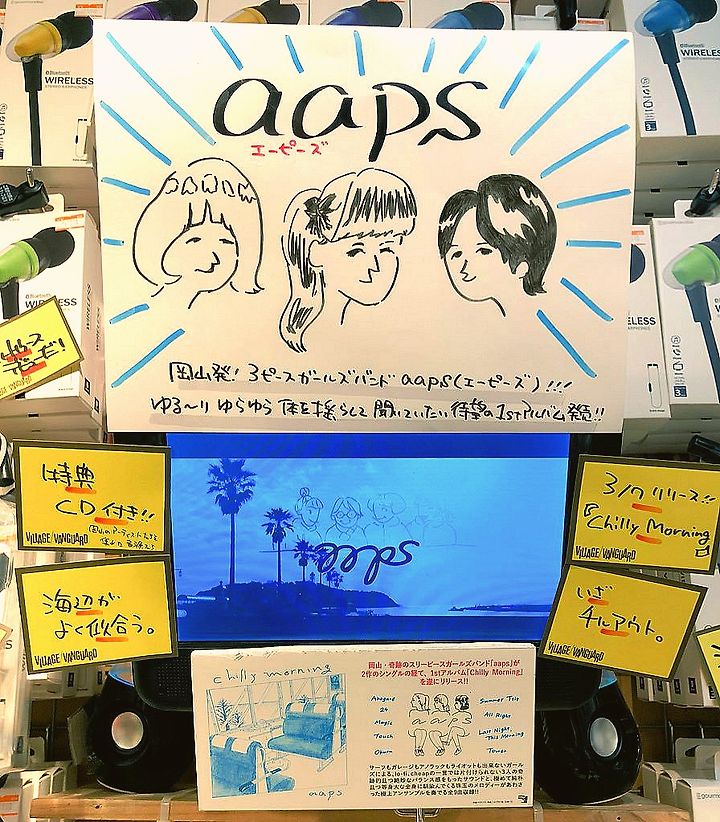 WIRELESS
STEREO EARPHONES
WIRELESS
aaps
エーピーズ
岡山発！3ピースガールズバンド aaps(エーピーズ)!!!
ゆる〜りゆらゆら 体を揺らして聞いていたい待望の1stアルバム発売!!
特典
CD付き!!
VILLAGE/VANGUARD
海辺が
よく似合う。
VILLAGE/VANGUARD
aaps
3/7リリース!!
『Chilly Morning』
VILLAGE/VANGUARD
いざ
チルアウト。
VILLAGE/VANGUARD
chilly morning
aaps
岡山・奇跡のスリーピースガールズバンド「aaps」が
2作のシングルの経て、1stアルバム「Chilly Morning」
を遂にリリース!!
24
Magic
Touch
Oburn
aaps
Summer Trip
All Right
Last Night,
This Morning
Tower
サーフもガレージもアノラックもライオットも出来ないガール
ズによる、lo-fi,cheapの一言では片付けられない3人の奇
跡的且つ絶妙なバランス感をもったサウンドと、極めて純朴
且つ等身大な全身に馴染んでくる珠玉のメロディーがあわさ
った極上アンサンブルを奏でる全9曲収録!!